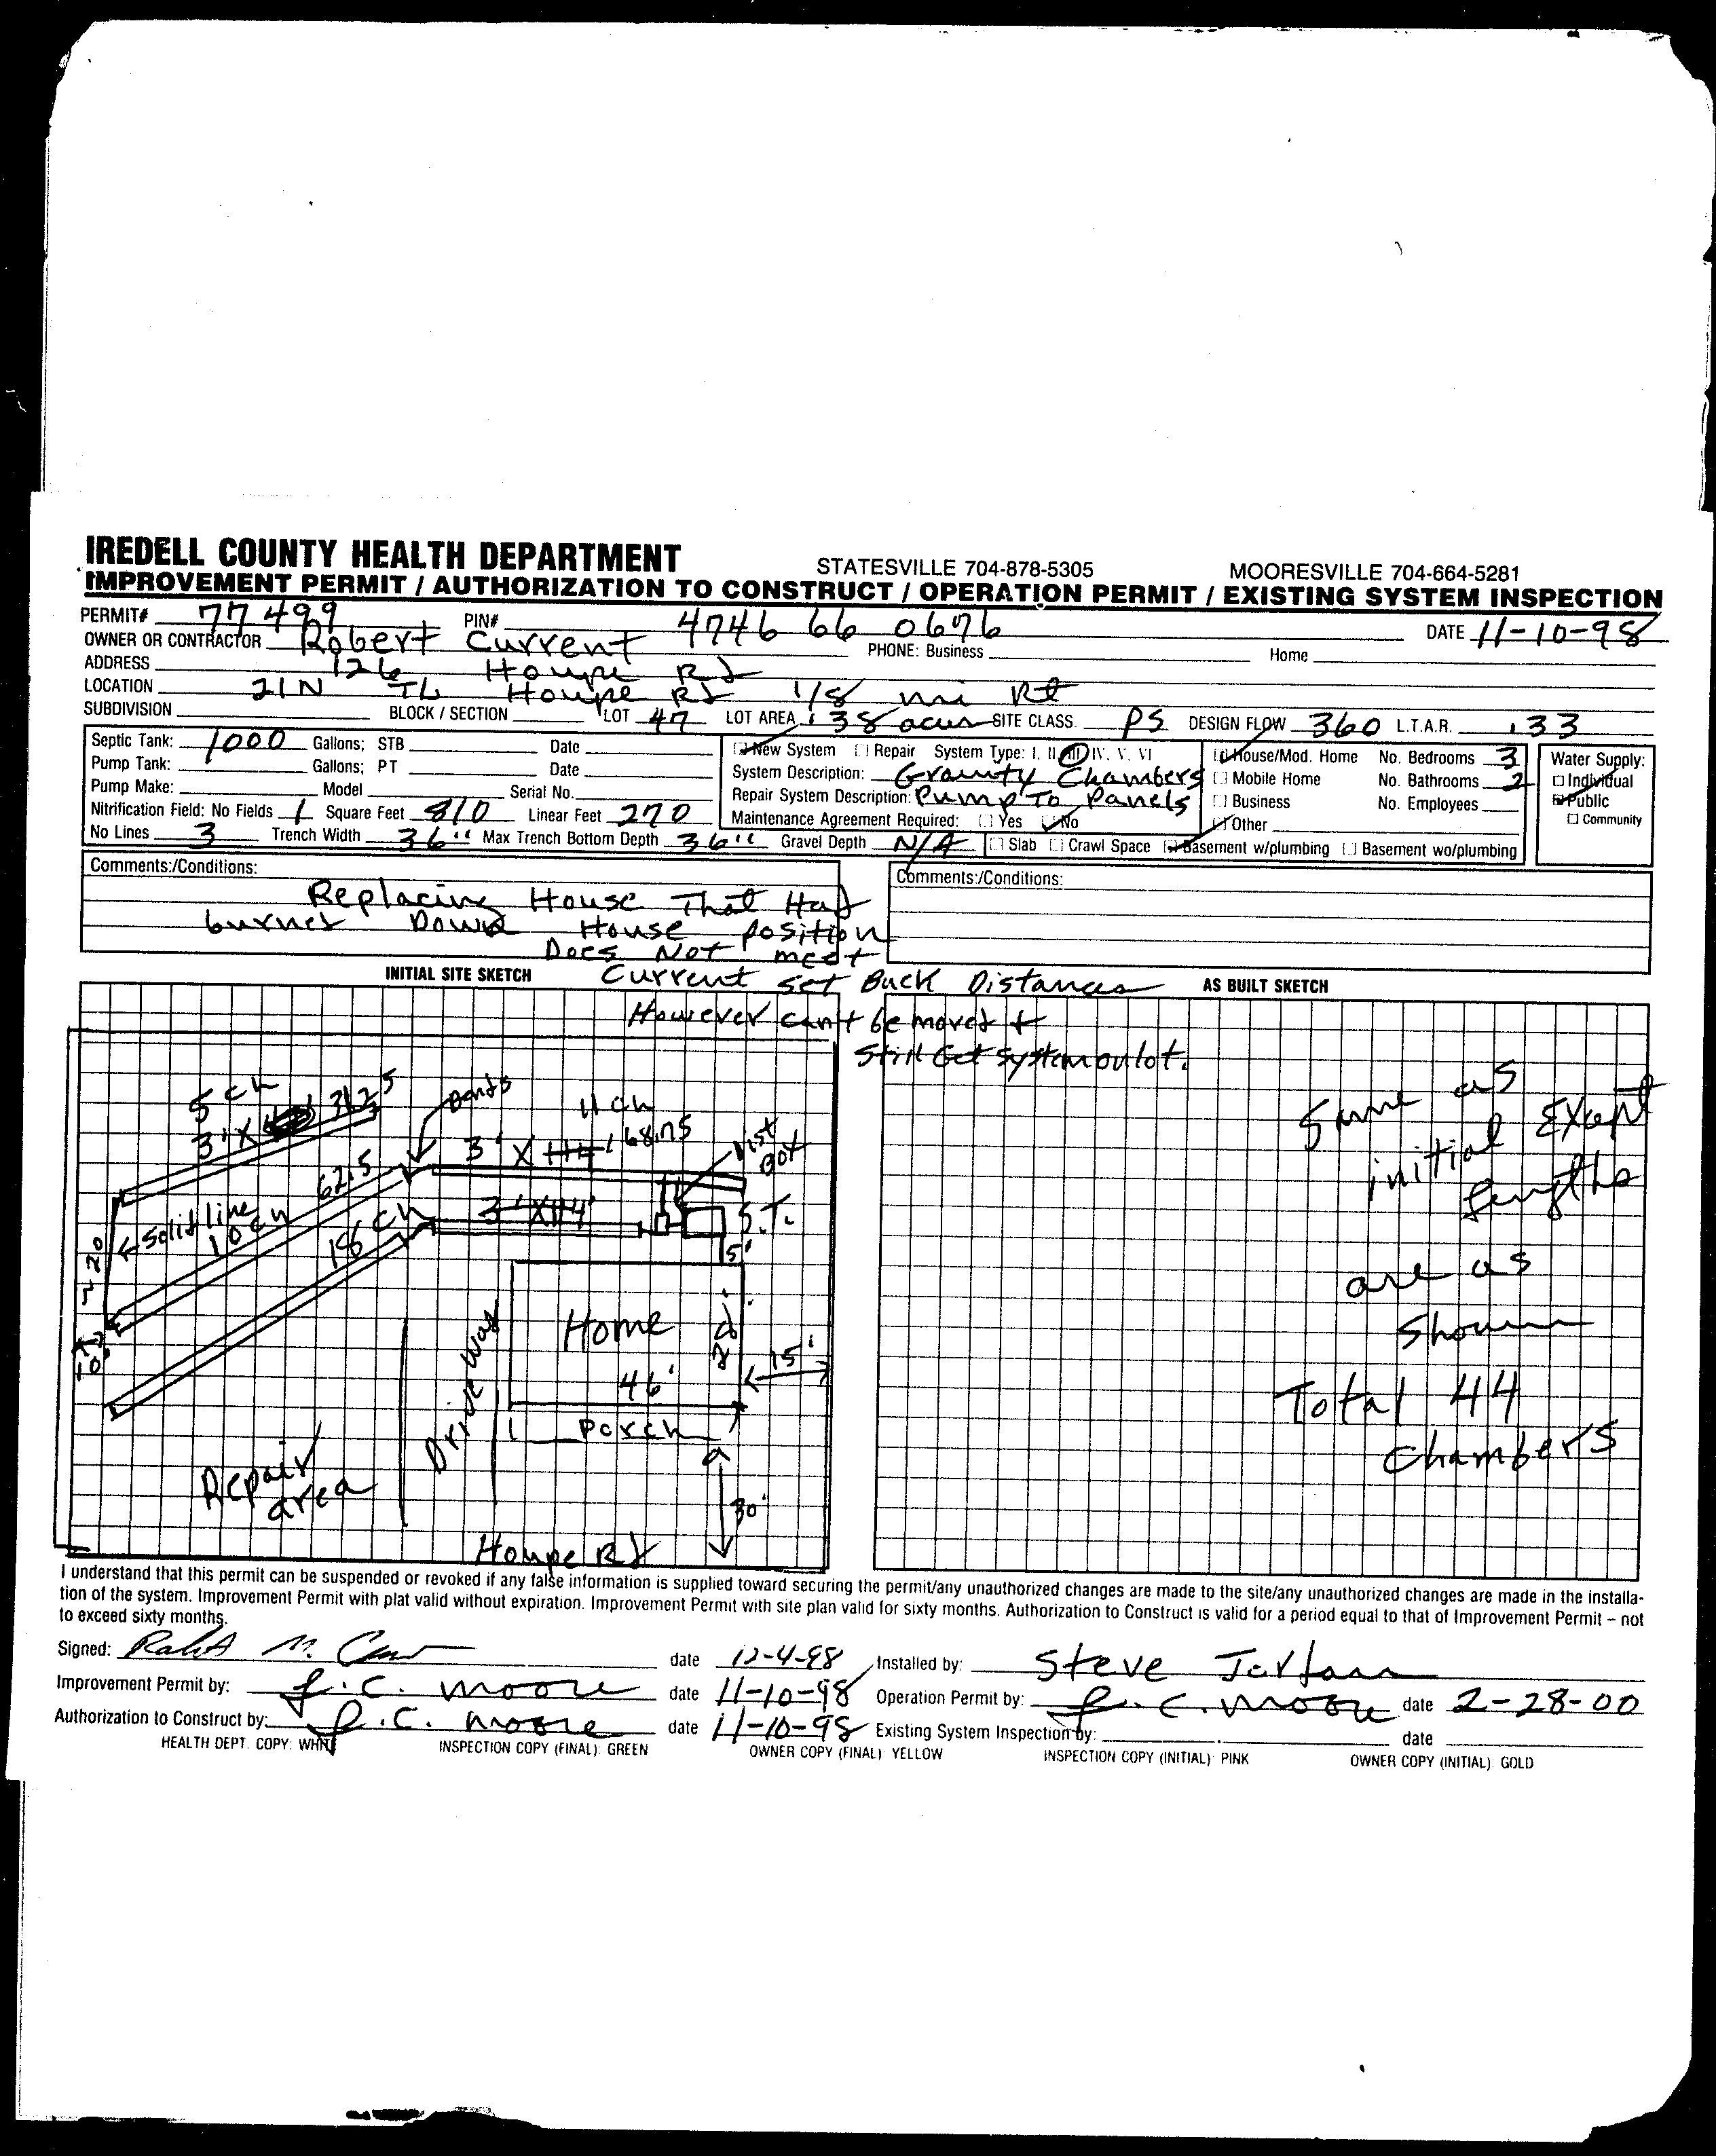 IREDELL COUNTY HEALTH DEPARTMENT STATESVILLE 704-878-5305 MOORESVILLE 704-664-5281
IMPROVEMENT PERMIT / AUTHORIZATION TO CONSTRUCT / OPERATION PERMIT / EXISTING SYSTEM INSPECTION
PERMIT# 77499 PIN# 4746 66 0676 DATE 11-10-98
OWNER OR CONTRACTOR Robert Current PHONE: Business Home
ADDRESS 126 Houpe Rd
LOCATION 21N TL Houpe Rd 1/8 mi Rt
SUBDIVISION BLOCK / SECTION LOT 47 LOT AREA .38 acres SITE CLASS. PS DESIGN FLOW 360 L.T.A.R. .33
Septic Tank: 1000 Gallons; STB Date
Pump Tank: Gallons; PT Date
Pump Make: Model Serial No.
Nitrification Field: No Fields 1 Square Feet 810 Linear Feet 270
No Lines 3 Trench Width 36" Max Trench Bottom Depth 36" Gravel Depth N/A
New System Repair System Type: I, II, III, IV, V, VI
System Description: Gravity Chambers
Repair System Description: Pump To Panels
Maintenance Agreement Required: Yes No
Slab Crawl Space Basement w/plumbing Basement wo/plumbing
House/Mod. Home No. Bedrooms 3
Mobile Home No. Bathrooms 2
Business No. Employees
Other
Water Supply:
Individual
Public
Community
Comments:/Conditions:
Replacing House That Had
burned Down House position
Does Not meet
Current set Back Distances
However can't be moved +
Still Get system on lot.
Comments:/Conditions:
INITIAL SITE SKETCH
5 ch
3' X 31.25
11 ch
3' X 114' 68.75
Dist
Box
62.5
Solid line
10 ch
18 ch
3' X 114'
S.T.
5'
20
10'
Home
46'
15'
Porch
Driveway
Repair
area
30'
Houpe Rd
AS BUILT SKETCH
Same as
initial Except
lengths
are as
Shown
Total 44
Chambers
I understand that this permit can be suspended or revoked if any false information is supplied toward securing the permit/any unauthorized changes are made to the site/any unauthorized changes are made in the installa-
tion of the system. Improvement Permit with plat valid without expiration. Improvement Permit with site plan valid for sixty months. Authorization to Construct is valid for a period equal to that of Improvement Permit – not
to exceed sixty months.
Signed: date 12-4-98 Installed by: Steve
Improvement Permit by: J.C. Moore date 11-10-98 Operation Permit by: J.C. Moore date 2-28-00
Authorization to Construct by: J.C. Moore date 11-10-98 Existing System Inspection by: date
HEALTH DEPT. COPY: WHITE INSPECTION COPY (FINAL): GREEN OWNER COPY (FINAL): YELLOW INSPECTION COPY (INITIAL): PINK OWNER COPY (INITIAL): GOLD